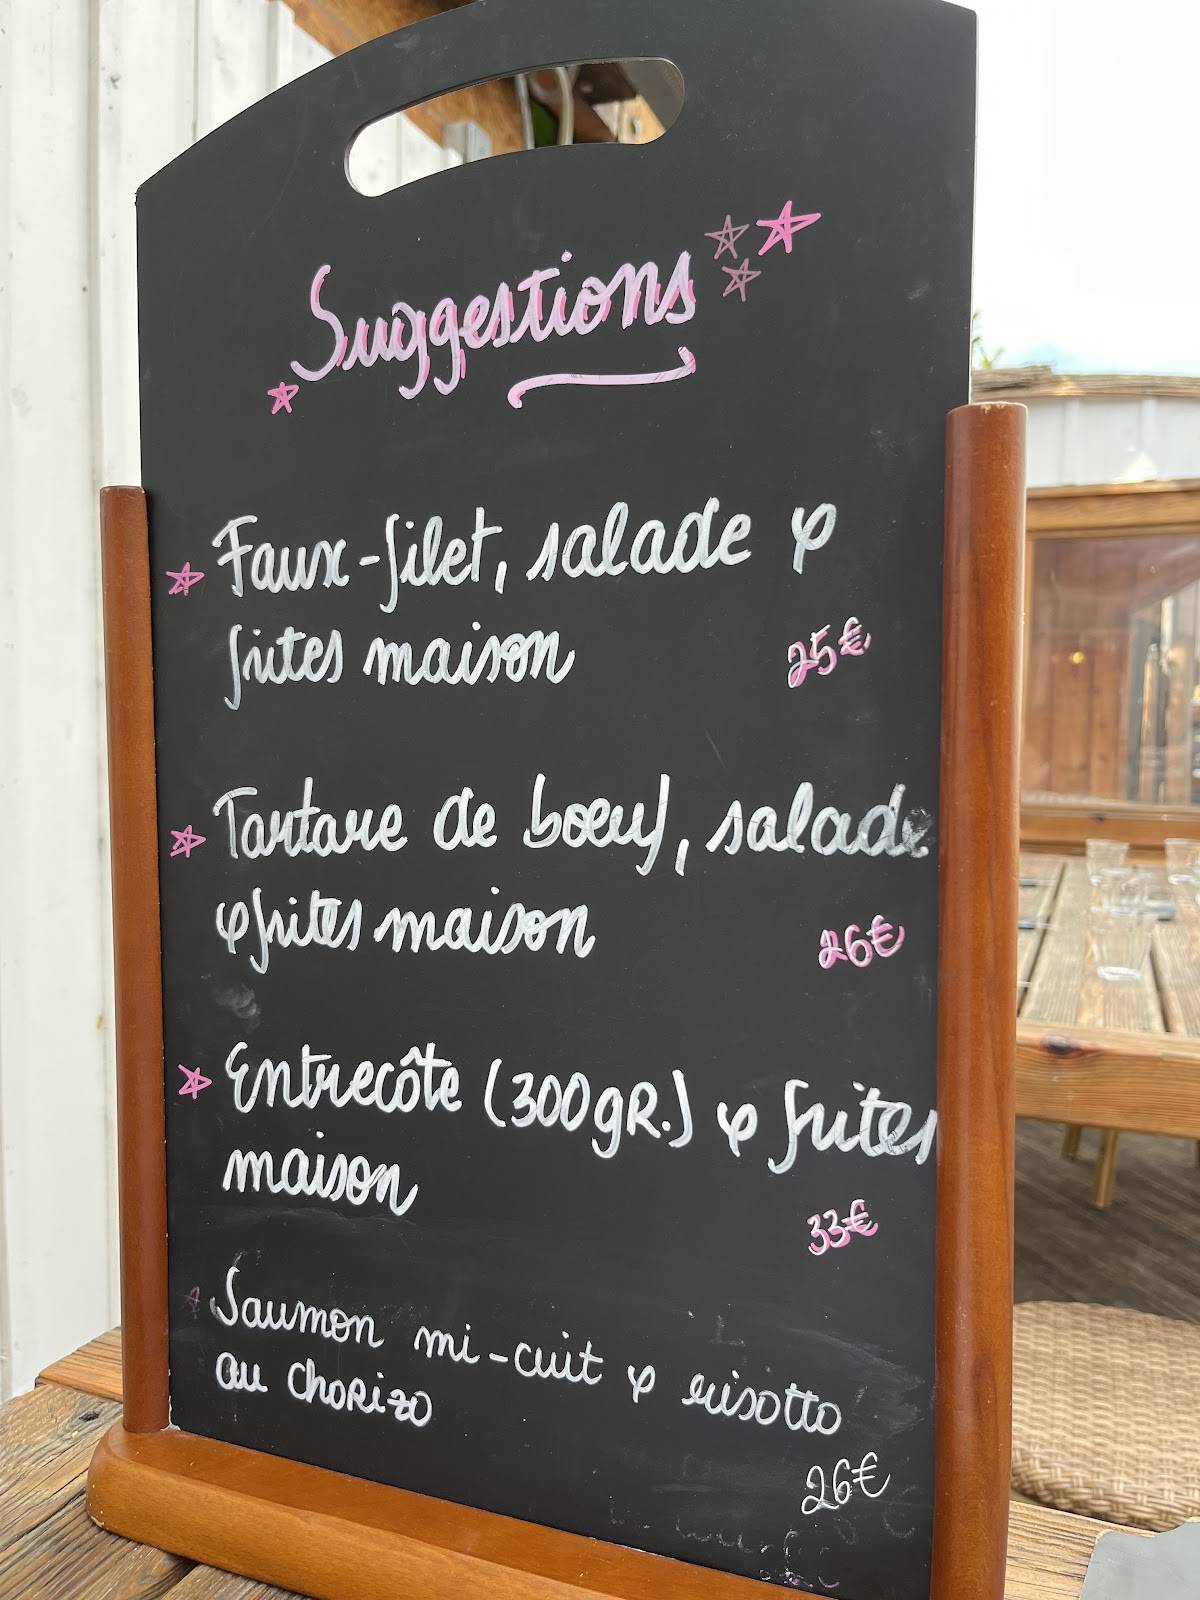 Suggestions
Faux-filet, salade &
frites maison
25€
Tartare de boeuf, salade
& frites maison
26€
Entrecôte (300gR.) & frites
maison
33€
Saumon mi-cuit & risotto
au choRizo
26€